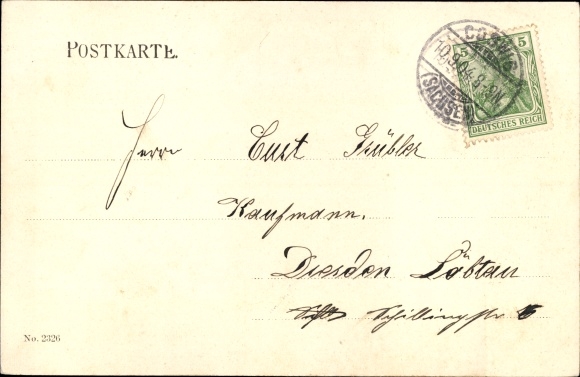 POSTKARTE.
5
COSWIG
10.9.04.8-9N.
(SACHSEN)
DEUTSCHES REICH
Herrn Curt Grübler
Kaufmann.
Dresden Löbtau
Schillingstr 6
No. 2326